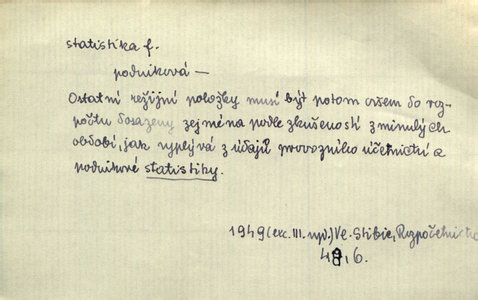 statistika f.
podniková —
Ostatní režijní položky musí být potom ovšem do roz-
počtu dosazeny zejména podle zkušeností z minulých
období, jak vyplývá z údajů provozního účetnictví a
podnikové statistiky.
1949 (exc. III. vyd.) Ve. Stibic, Rozpočetnictví
48, 6.